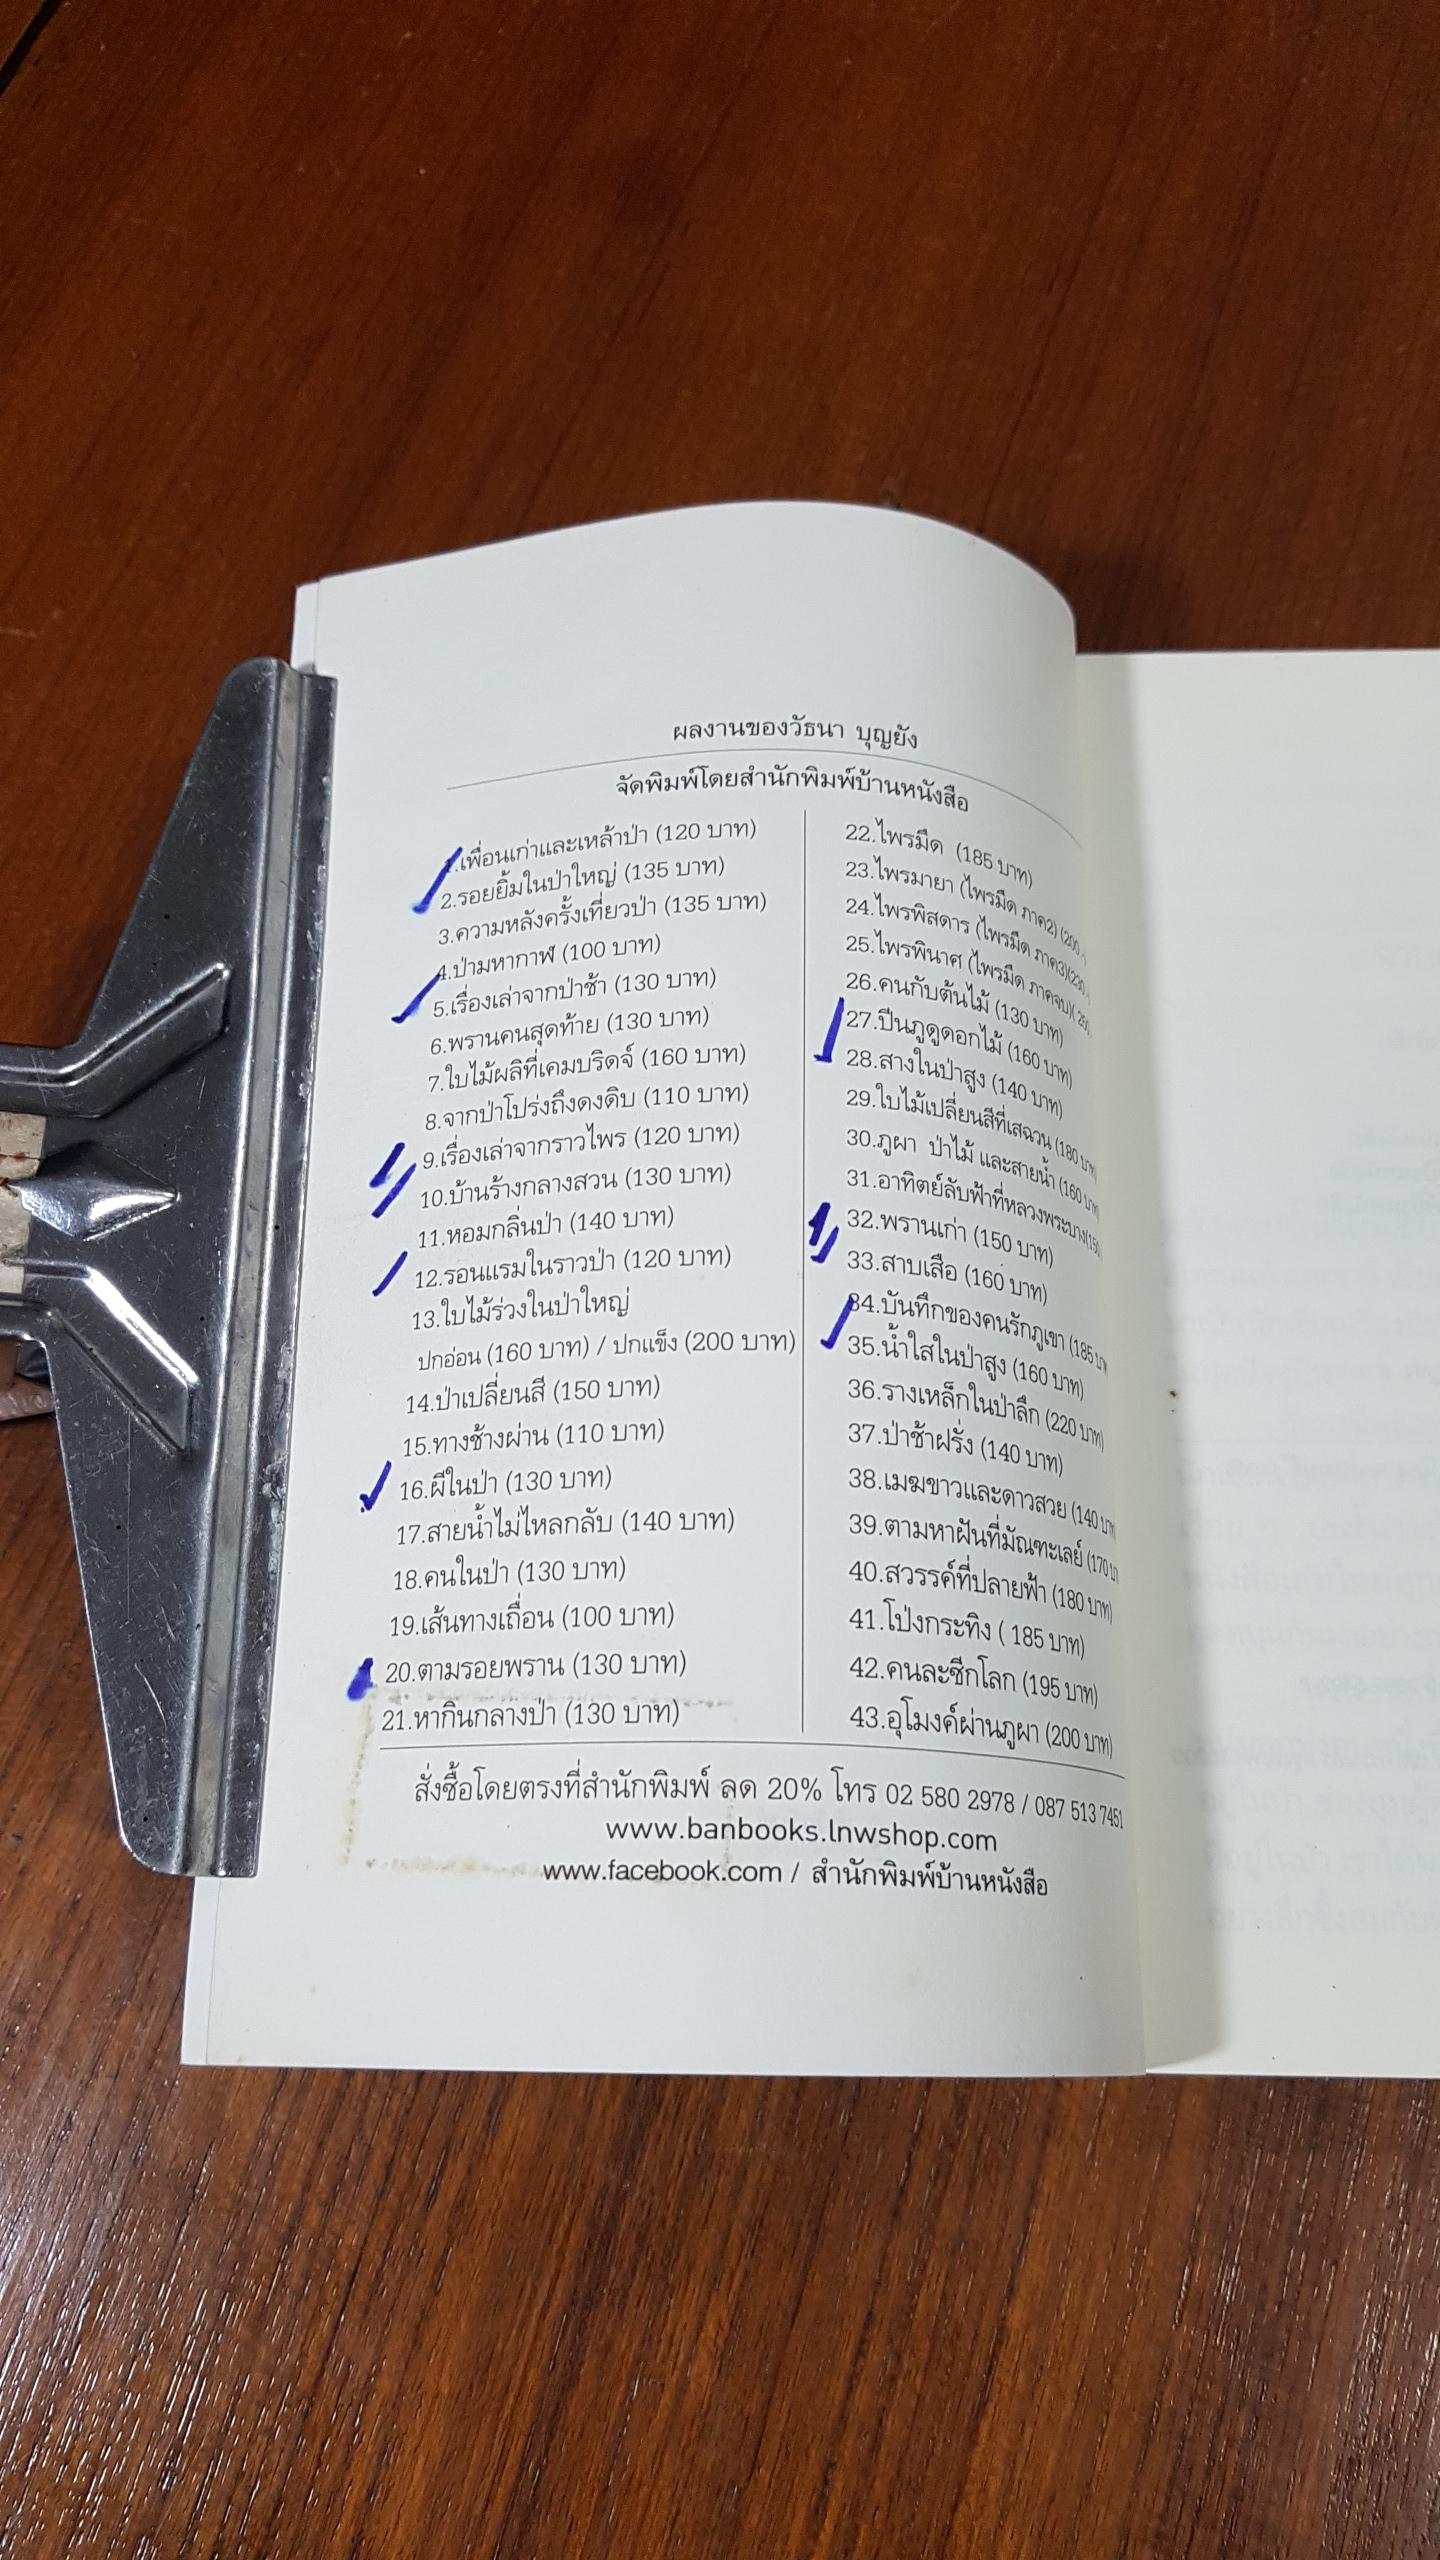 ผลงานของวัธนา บุญยัง
จัดพิมพ์โดยสำนักพิมพ์บ้านหนังสือ
1.เพื่อนเก่าและเหล้าป่า (120 บาท)
2.รอยยิ้มในป่าใหญ่ (135 บาท)
3.ความหลังครั้งเที่ยวป่า (135 บาท)
4.ป่ามหากาฬ (100 บาท)
5.เรื่องเล่าจากป่าช้า (130 บาท)
6.พรานคนสุดท้าย (130 บาท)
7.ใบไม้ผลิที่เคมบริดจ์ (160 บาท)
8.จากป่าโปร่งถึงดงดิบ (110 บาท)
9.เรื่องเล่าจากราวไพร (120 บาท)
10.บ้านร้างกลางสวน (130 บาท)
11.หอมกลิ่นป่า (140 บาท)
12.รอนแรมในราวป่า (120 บาท)
13.ใบไม้ร่วงในป่าใหญ่
ปกอ่อน (160 บาท) / ปกแข็ง (200 บาท)
14.ป่าเปลี่ยนสี (150 บาท)
15.ทางช้างผ่าน (110 บาท)
16.ผีในป่า (130 บาท)
17.สายน้ำไม่ไหลกลับ (140 บาท)
18.คนในป่า (130 บาท)
19.เส้นทางเถื่อน (100 บาท)
20.ตามรอยพราน (130 บาท)
21.หากินกลางป่า (130 บาท)
22.ไพรมืด (185 บาท)
23.ไพรมายา (ไพรมืด ภาค2) (200
24.ไพรพิสดาร (ไพรมืด ภาค3)(230
25.ไพรพินาศ (ไพรมืด ภาคจบ)(
26.คนกับต้นไม้ (130 บาท)
27.ปีนภูดูดอกไม้ (160 บาท)
28.สางในป่าสูง (140 บาท)
29.ใบไม้เปลี่ยนสีที่เสฉวน (180 บาท)
30.ภูผา ป่าไม้ และสายน้ำ (160 บาท)
31.อาทิตย์ลับฟ้าที่หลวงพระบาง(150
32.พรานเก่า (150 บาท)
33.สาบเสือ (160 บาท)
34.บันทึกของคนรักภูเขา (185 บาท
35.น้ำใสในป่าสูง (160 บาท)
36.รางเหล็กในป่าลึก (220 บาท)
37.ป่าช้าฝรั่ง (140 บาท)
38.เมฆขาวและดาวสวย (140 บาท)
39.ตามหาฝันที่มัณฑะเลย์ (170 บา
40.สวรรค์ที่ปลายฟ้า (180 บาท)
41.โป่งกระทิง ( 185 บาท)
42.คนละซีกโลก (195 บาท)
43.อุโมงค์ผ่านภูผา (200 บาท)
สั่งซื้อโดยตรงที่สำนักพิมพ์ ลด 20% โทร 02 580 2978 / 087 513 7451
www.banbooks.lnwshop.com
www.facebook.com / สำนักพิมพ์บ้านหนังสือ